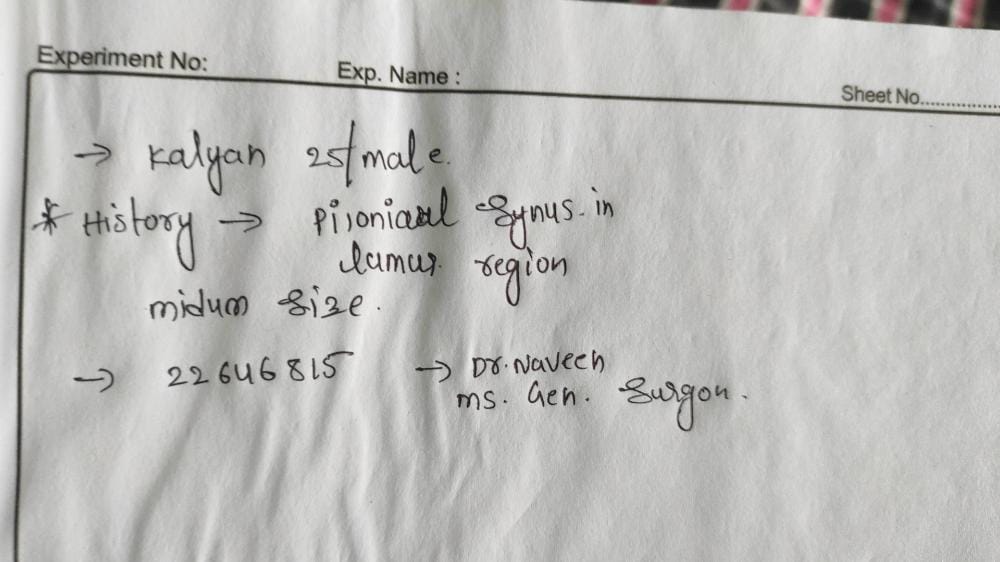 Experiment No:
Exp. Name :
Sheet No...............
→ Kalyan 25/male.
* History → Pijoniaal Synus. in
lumur. region
midum size.
→ 22646815 → Dr. Naveen
ms. Gen. Surgon.